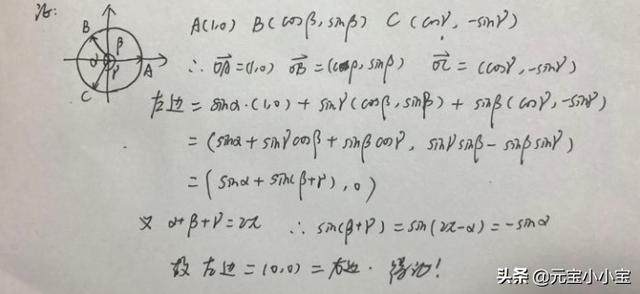 治:
B β α γ A C
A(1,0) B(cosβ, sinβ) C(cosγ, -sinγ)
∴ OA⃗=(1,0) OB⃗=(cosβ, sinβ) OC⃗=(cosγ, -sinγ)
左边=sinα·(1,0)+sinγ(cosβ, sinβ)+sinβ(cosγ, -sinγ)
=(sinα+sinγcosβ+sinβcosγ, sinγsinβ-sinβsinγ)
=(sinα+sin(β+γ), 0)
又 α+β+γ=2π ∴ sin(β+γ)=sin(2π-α)=-sinα
故 左边=(0,0)=右边. 得证!
头条 @元宝小小宝